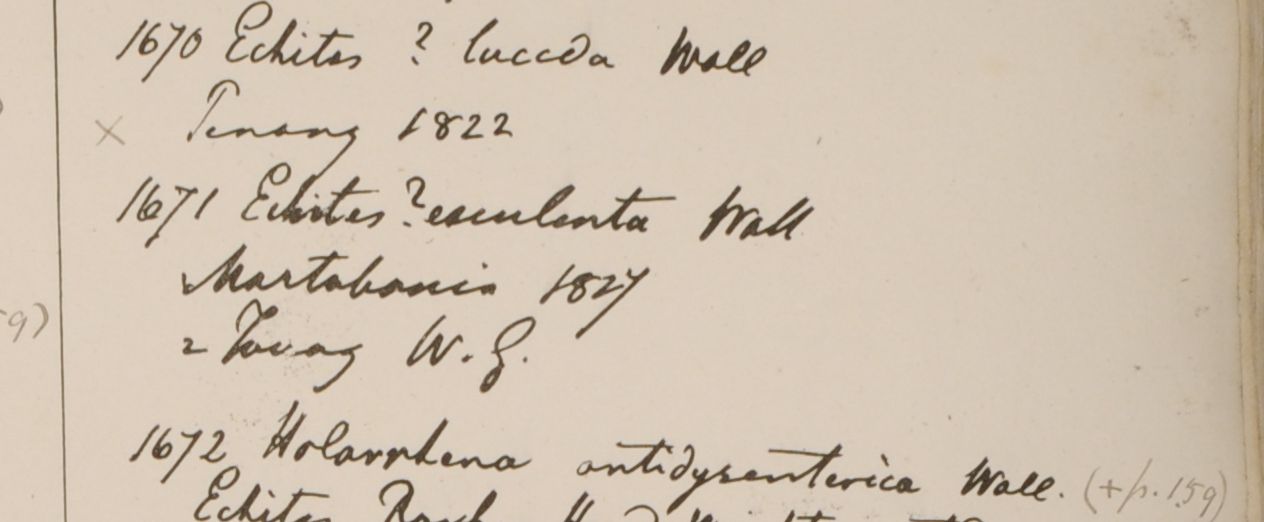 1670 Echites ? lucida Wall
× Penang 1822
1671 Echites ? esculenta Wall
Martabania 1827
2 Tavoy W. G.
9)
1672 Holarrhena antidysenterica Wall. (+ p. 159)
Echites Roxb.